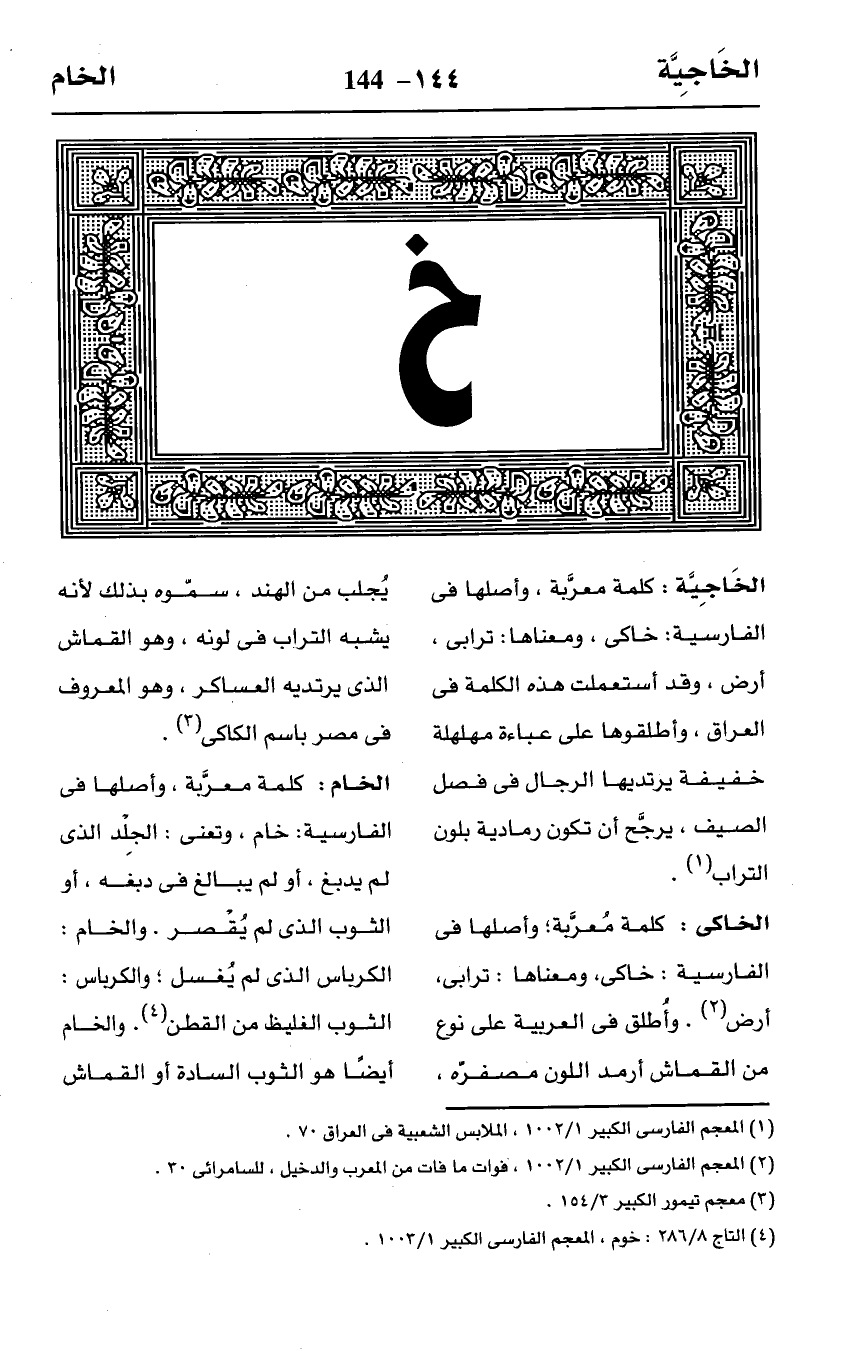 الخَاجِيَّة
١٤٤- 144
الخام
خ
الخَاجِيَّة : كلمة معرَّبة ، وأصلها فى
الفارسية: خاكى ، ومعناها: ترابى ،
أرض ، وقد أستعملت هذه الكلمة فى
العراق ، وأطلقوها على عباءة مهلهلة
خفيفة يرتديها الرجال فى فصل
الصيف ، يرجَّح أن تكون رمادية بلون
التراب(١) .
الخاكى : كلمة مُعرَّبة؛ وأصلها فى
الفارسية : خاكى، ومعناها : ترابى،
أرض(٢) . وأُطلق فى العربية على نوع
من القماش أرمد اللون مصفرّه ،
يُجلب من الهند ، سمّوه بذلك لأنه
يشبه التراب فى لونه ، وهو القماش
الذى يرتديه العساكر ، وهو المعروف
فى مصر باسم الكاكى(٣) .
الخام : كلمة معرَّبة ، وأصلها فى
الفارسية: خام ، وتعنى : الجِلْد الذى
لم يدبغ ، أو لم يبالغ فى دبغه ، أو
الثوب الذى لم يُقْصر . والخام :
الكرباس الذى لم يُغسل ؛ والكرباس :
الثوب الغليظ من القطن(٤). والخام
أيضًا هو الثوب السادة أو القماش
(١) المعجم الفارسى الكبير ١٠٠٢/١ ، الملابس الشعبية فى العراق ٧٠ .
(٢) المعجم الفارسى الكبير ١٠٠٢/١ ، فوات ما فات من المعرب والدخيل ، للسامرائى ٣٠ .
(٣) معجم تيمور الكبير ١٥٤/٣ .
(٤) التاج ٢٨٦/٨ : خوم ، المعجم الفارسى الكبير ١٠٠٣/١ .